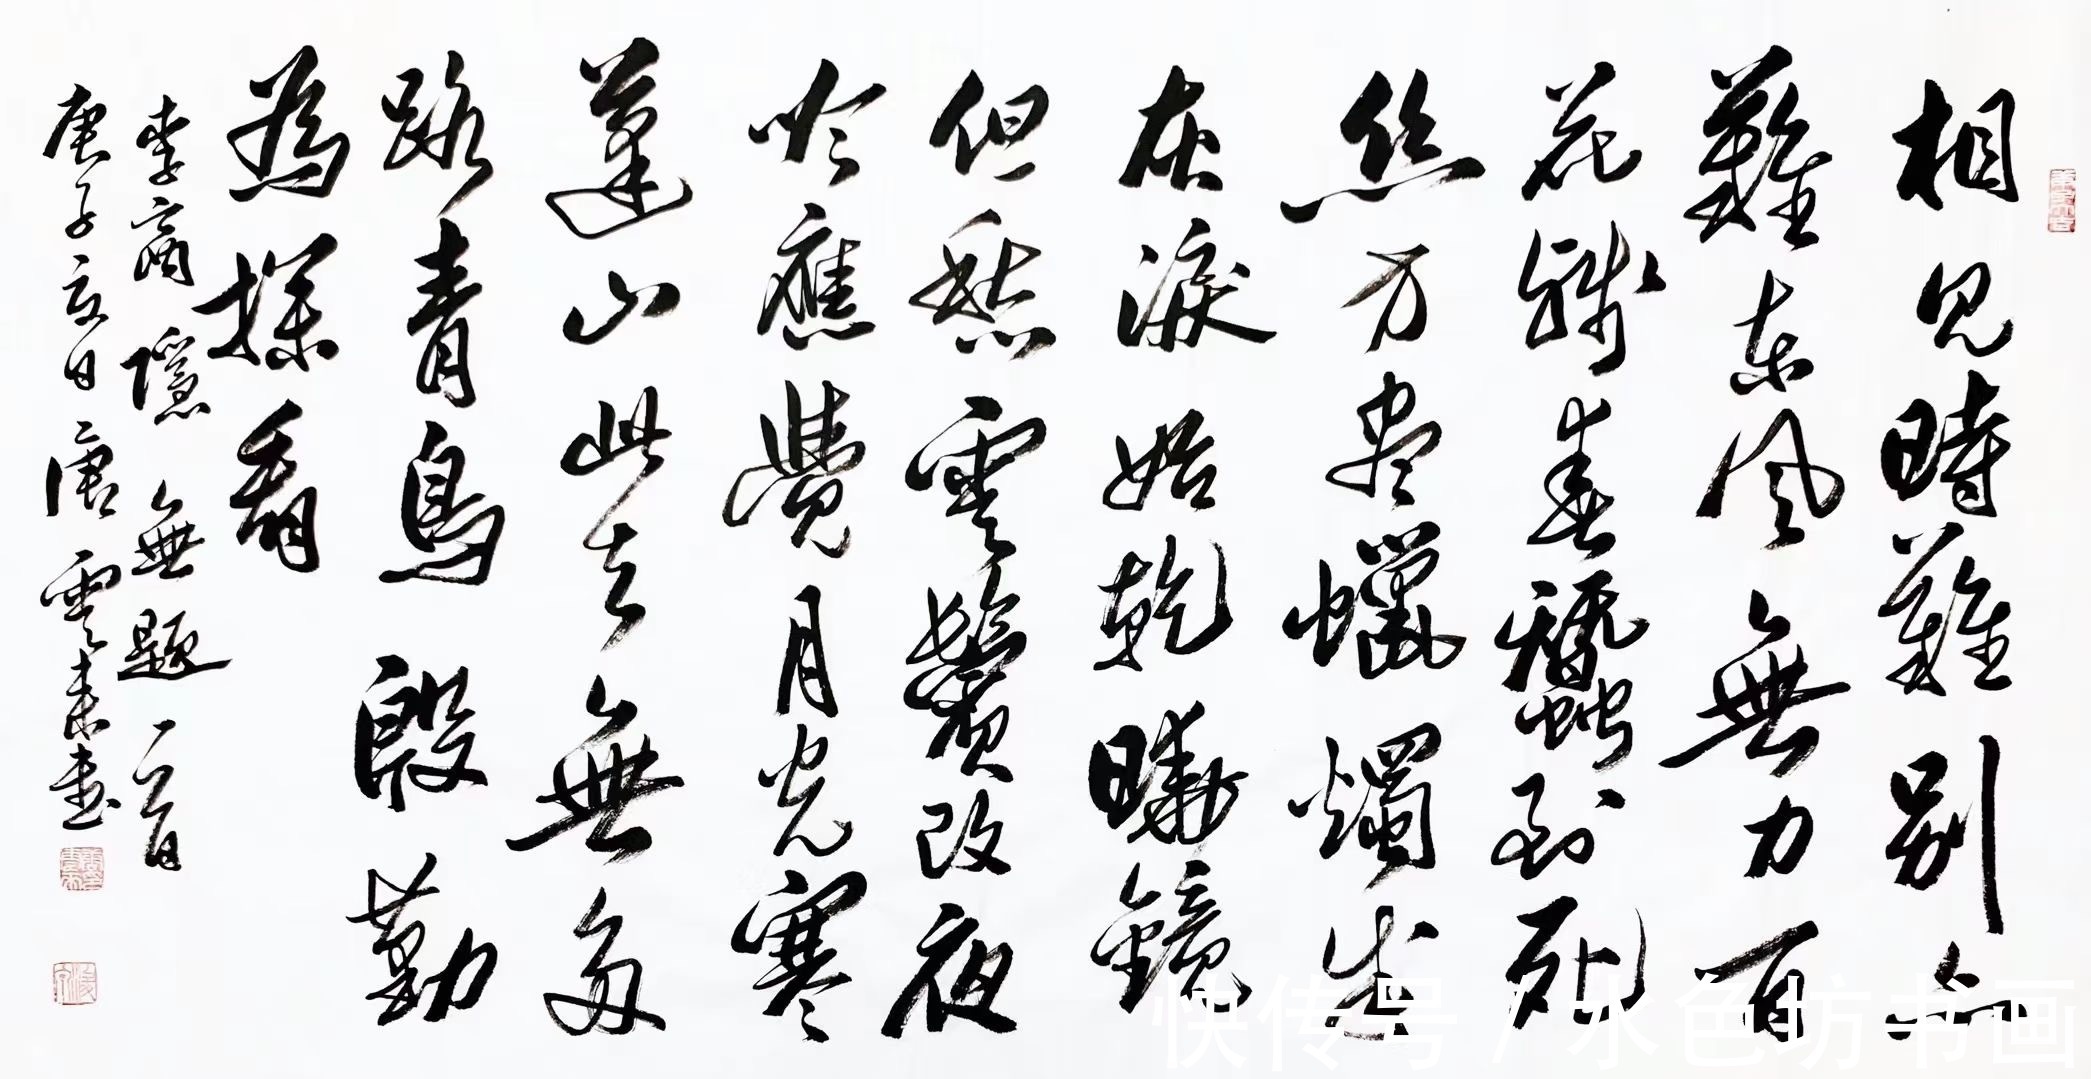 相見時難別亦
難東風無力百
花殘春蠶到死
絲方盡蠟燭成
灰淚始乾曉鏡
但愁雲鬢改夜
吟應覺月光寒
蓬山此去無多
路青鳥殷勤
為探看
李商隱無題一首
庚子夏日唐雲來書
快传号 / 水色坊书画